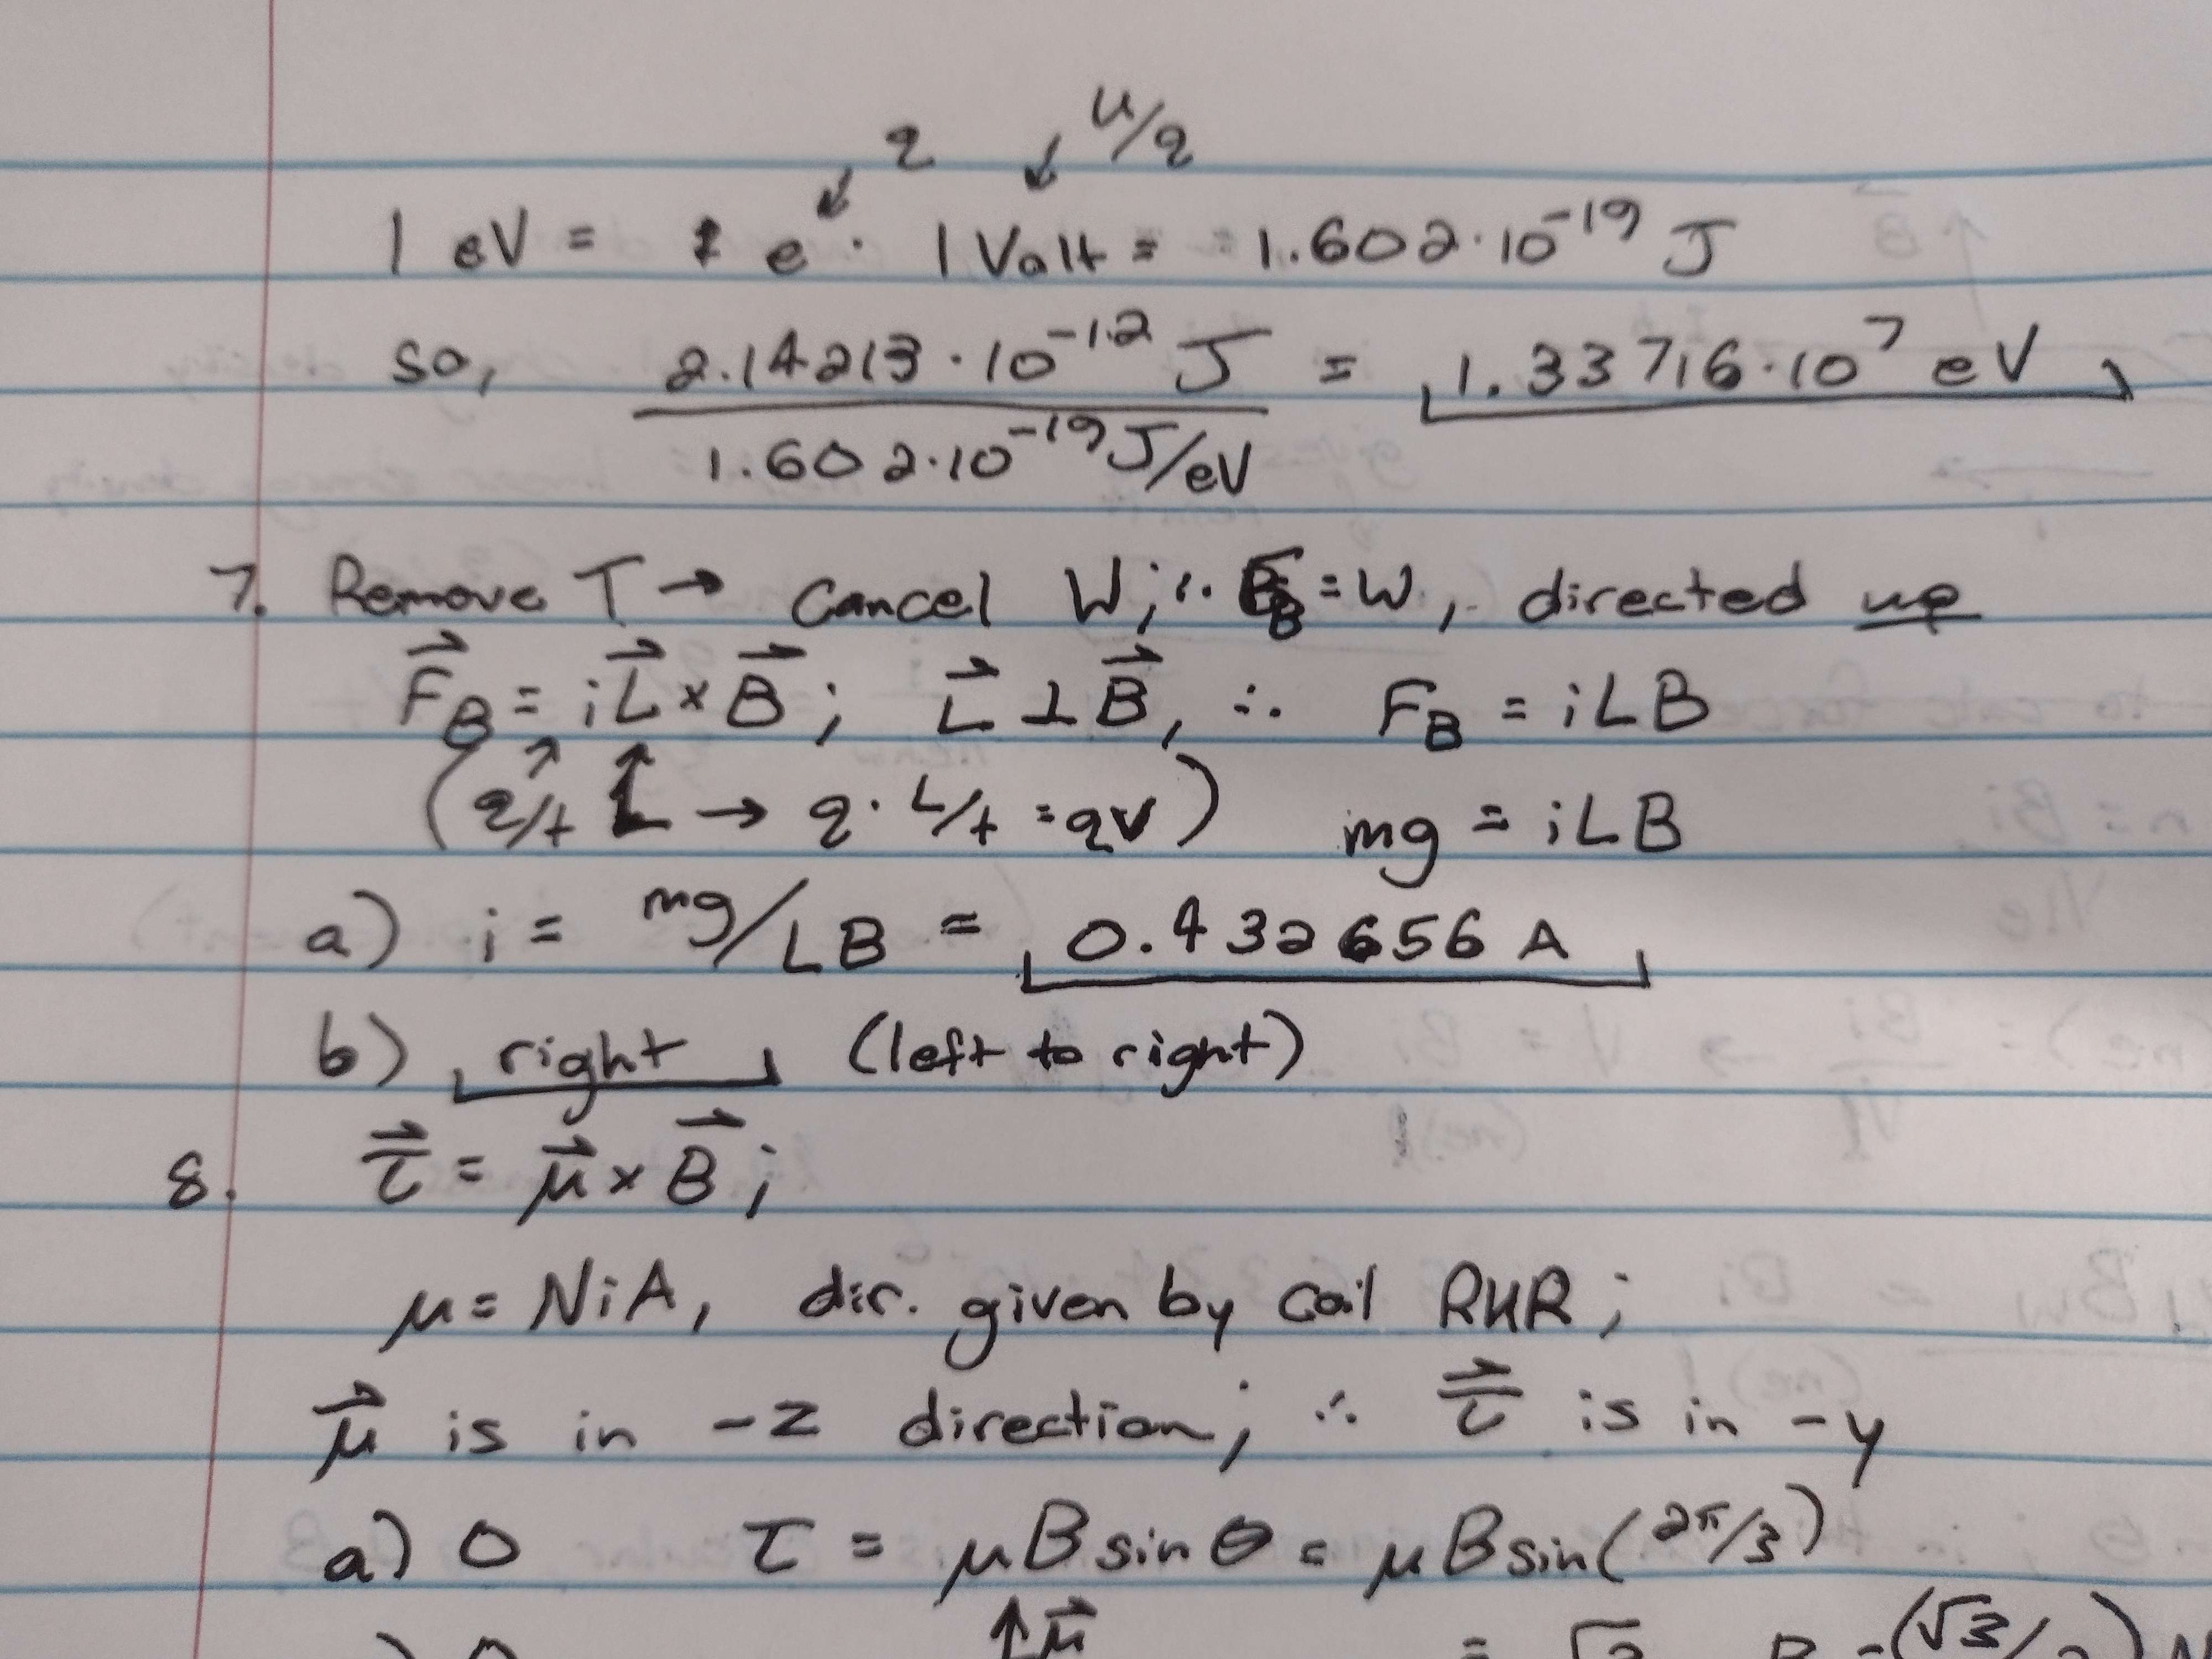 q U/q
1 eV = e · 1 Volt = 1.602·10⁻¹⁹ J
so, 2.14213·10⁻¹² J = 1.33716·10⁷ eV
1.602·10⁻¹⁹ J/eV
7. Remove T → cancel W; ∴ F_B = W, directed up
F⃗_B = iL⃗ × B⃗; L⃗ ⊥ B⃗, ∴ F_B = iLB
(q/t L → q · L/t = qv) mg = iLB
a) i = mg/LB = 0.432656 A
b) right (left to right)
8. τ⃗ = μ⃗ × B⃗;
μ = NiA, dir. given by coil RHR;
μ⃗ is in -z direction; ∴ τ⃗ is in -y
a) 0 τ = μB sin θ = μB sin(2π/3)
↑μ⃗